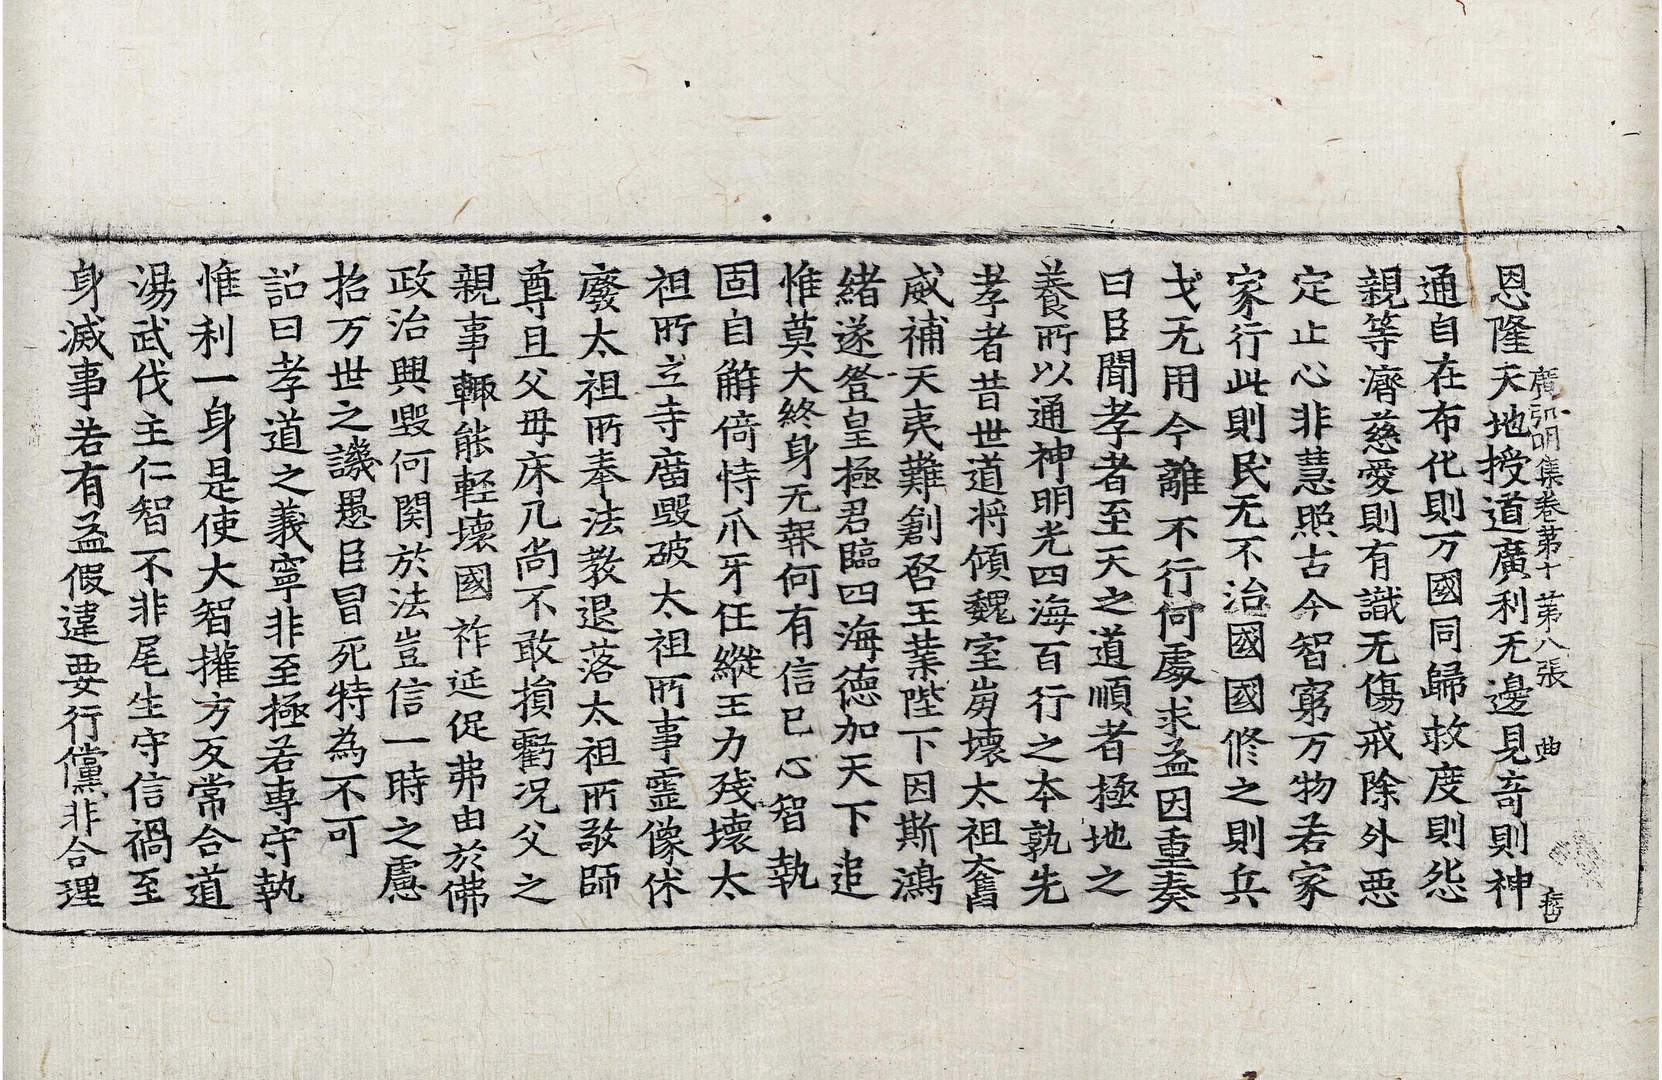 廣弘明集卷第十 第八張 典
恩隆天地授道廣利无邊見奇則神
通自在布化則万國同歸救度則怨
親等濟慈愛則有識无傷戒除外惡
定止心非慧照古今智窮万物若家
家行此則民无不治國國修之則兵
戈无用今雖不行何處求益因重奏
曰臣聞孝者至天之道順者極地之
養所以通神明光四海百行之本孰先
孝者昔世道將傾魏室崩壞太祖奮
威補天夷難創啓王業陛下因斯鴻
緒遂登皇極君臨四海德加天下追
惟莫大終身无報何有信已心智執
固自解倚恃爪牙任縱王力殘壞太
祖所立寺廟毀破太祖所事靈像休
廢太祖所奉法教退落太祖所敬師
尊且父母床几尚不敢損虧況父之
親事輒能輕壞國祚延促弗由於佛
政治興毀何関於法豈信一時之慮
招万世之譏愚臣冒死特為不可
詔曰孝道之義寧非至極若專守執
惟利一身是使大智權方反常合道
湯武伐主仁智不非尾生守信禍至
身滅事若有益假違要行儻非合理